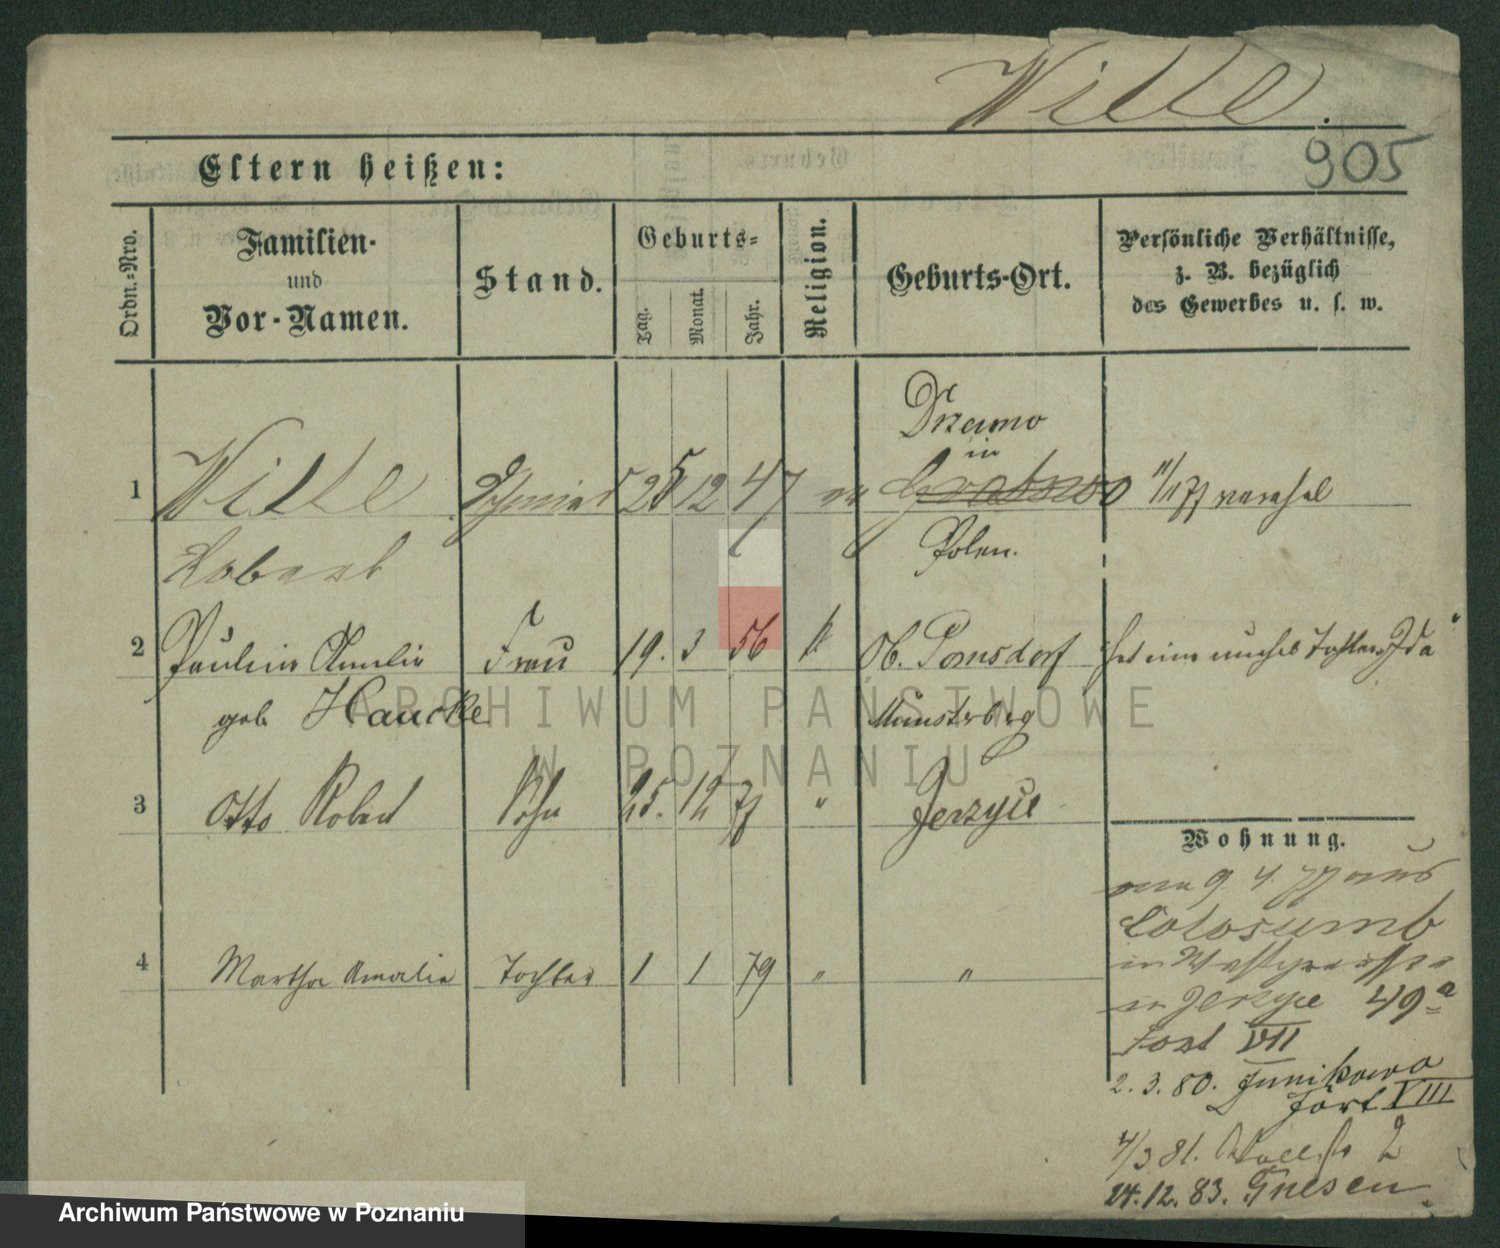 Witte.
905
Eltern heißen:
Ordn.=Nro.
Familien-
und
Vor-Namen.
Stand.
Geburts=
Tag.
Monat.
Jahr.
Religion.
Geburts-Ort.
Persönliche Verhältnisse,
z. B. bezüglich
des Gewerbes u. s. w.
Drzewno
in
1 Witte Schmied 25 12 47 ev Grabowo
Robert
Polen.
2 Paulin Amalie Frau 19. 3 56 k Ob. Pomsdorf Hat eine Tochter Ida
geb Haucke Münsterberg
3 Otto Robert Sohn 25. 12 77 " Jerzyce
4 Martha Amalie Tochter 1 1 79 " "
Wohnung.
9 4. 77 aus
in Westpreussen
in Jerzyce 49a
Fort VII
2. 3. 80. Junikowo
Fort VIII
4/3 81. Wallstr 2
24. 12. 83. Gnesen.
ARCHIWUM PAŃSTWOWE
W POZNANIU
Archiwum Państwowe w Poznaniu